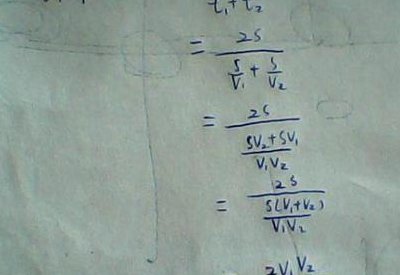 t₁+t₂
= 2S / (S/V₁ + S/V₂)
= 2S / ((SV₂+SV₁)/(V₁V₂))
= 2S / (S(V₁+V₂)/(V₁V₂))
2V₁V₂